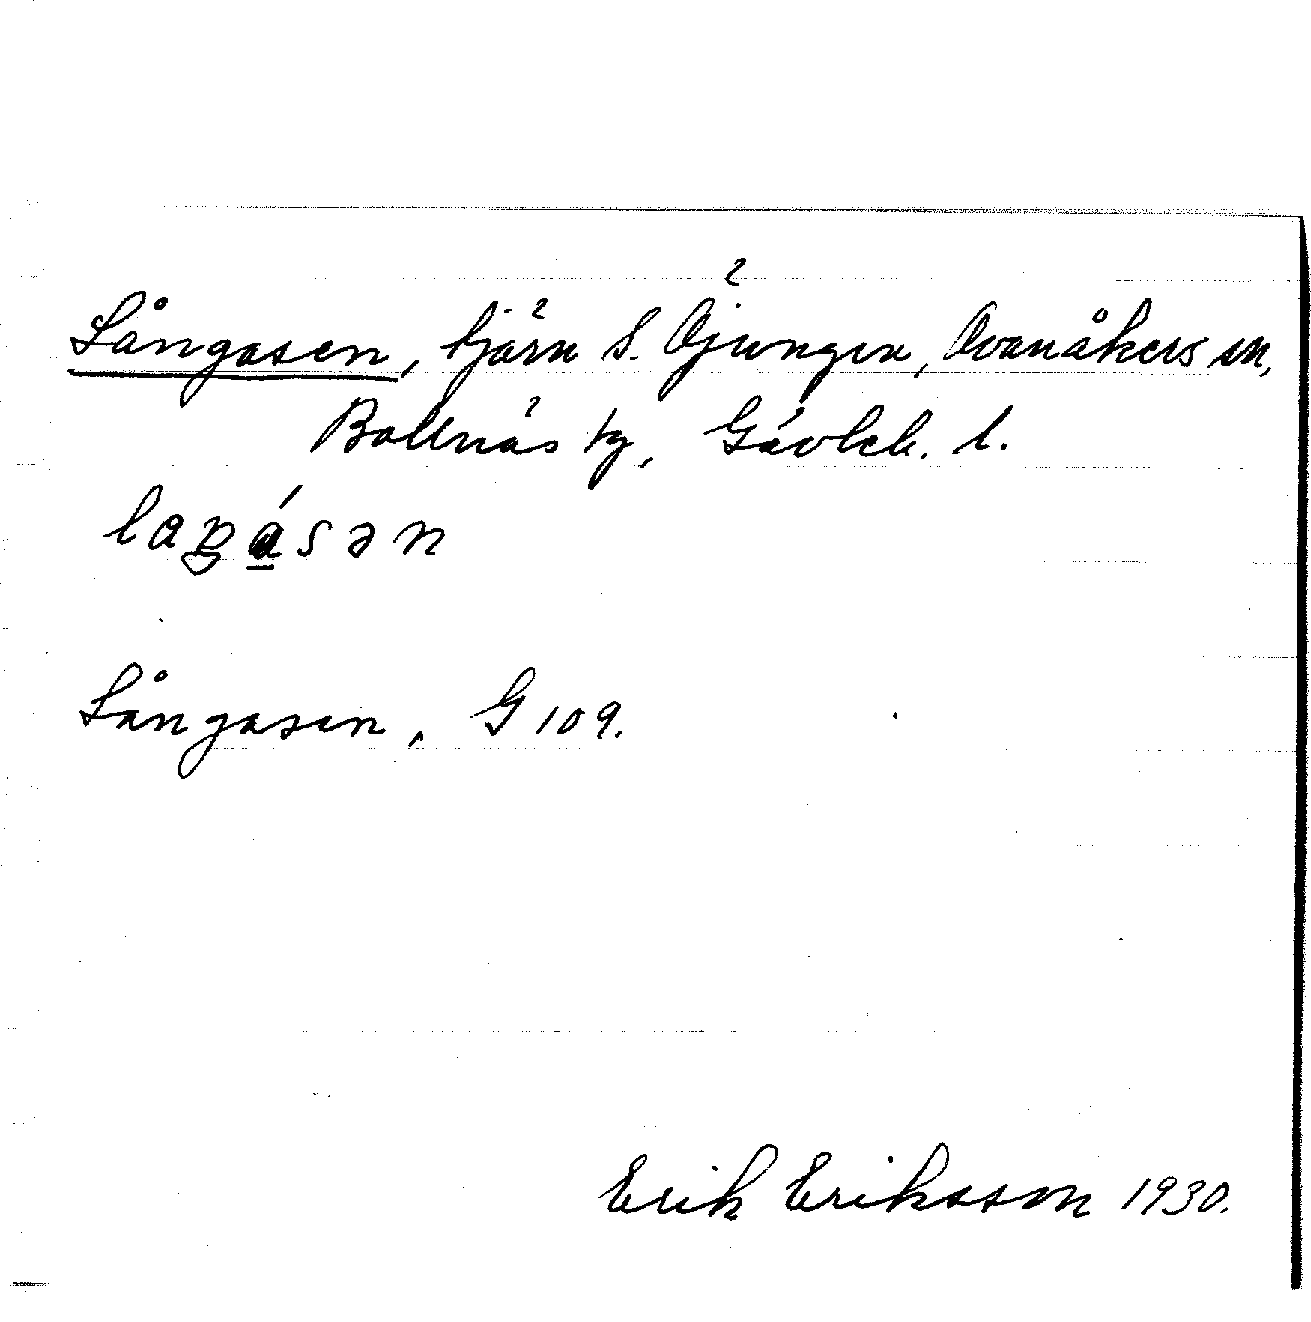 Långasen, tjärn S. Öjungen, Ovanåkers sn,
Bollnäs tg, Gävleb. l.
Långasen, G 109.
Erik Eriksson 1930.